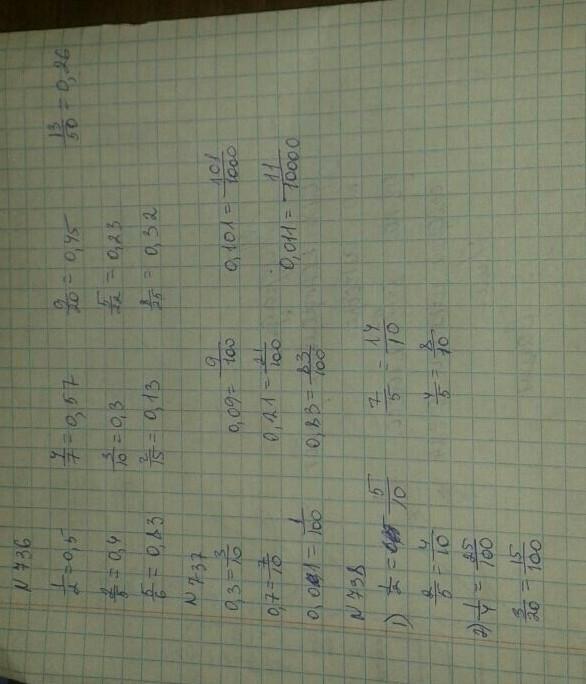 N 736
1/2 = 0,5 4/7 = 0,57 9/20 = 0,45 13/50 = 0,26
2/5 = 0,4 3/10 = 0,3 5/22 = 0,23
5/6 = 0,83 2/15 = 0,13 8/25 = 0,32
N 737
0,3 = 3/10 0,09 = 9/100 0,101 = 101/1000
0,7 = 7/10 0,21 = 21/100 0,011 = 11/10000
0,01 = 1/100 0,83 = 83/100
N 738
1) 1/2 = 5/10 7/5 = 14/10
2/5 = 4/10 4/5 = 8/10
2) 1/4 = 25/100
3/20 = 15/100